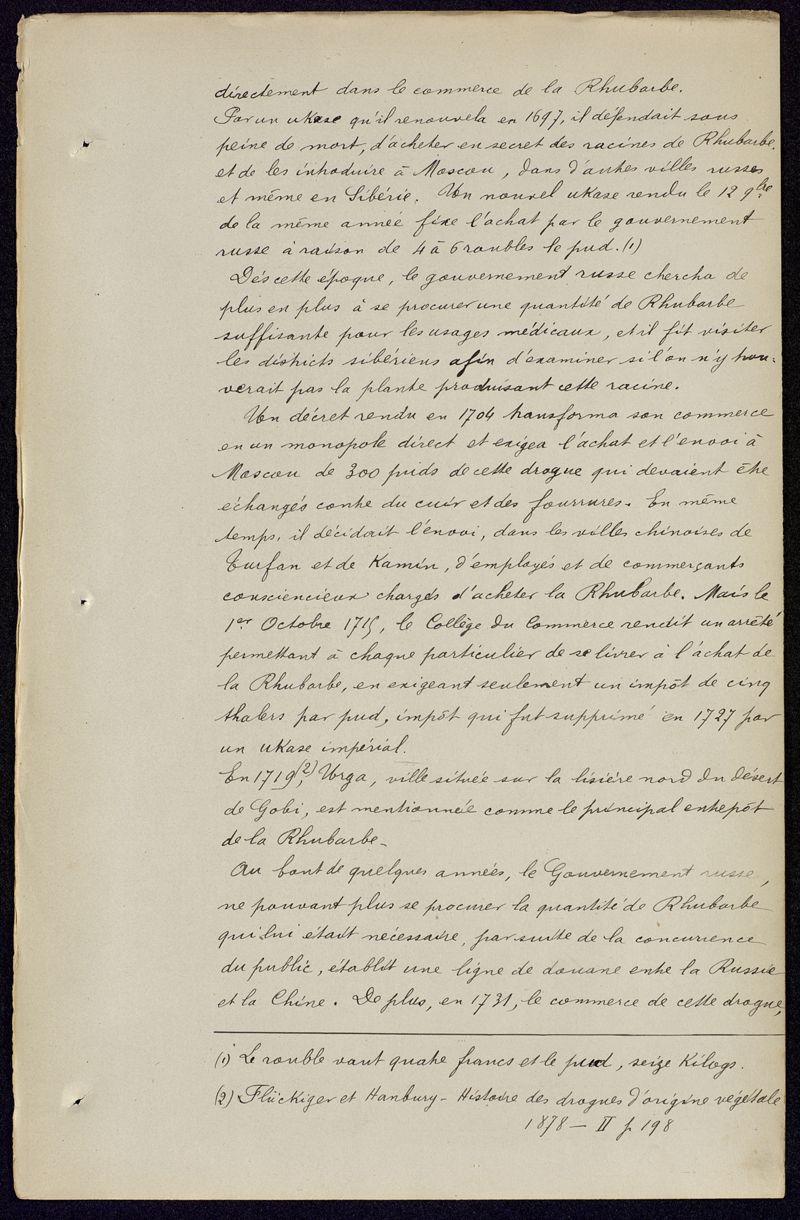 directement dans le commerce de la Rhubarbe.
Par un ukase qu'il renouvela en 1697, il défendait sous
peine de mort, d'acheter en secret des racines de Rhubarbe,
et de les introduire à Moscou, dans d'autres villes russes
et même en Sibérie. Un nouvel ukase rendu le 12 9bre
de la même année fixe l'achat par le gouvernement
russe à raison de 4 à 6 roubles le pud. (1)
Dès cette époque, le gouvernement russe chercha de
plus en plus à se procurer une quantité de Rhubarbe
suffisante pour les usages médicaux, et il fit visiter
les districts sibériens afin d'examiner si l'on n'y trou-
verait pas la plante produisant cette racine.
Un décret rendu en 1704 transforma son commerce
en un monopole direct et exigea l'achat et l'envoi à
Moscou de 300 puds de cette drogue qui devaient être
échangés contre du cuir et des fourrures. En même
temps, il décidait l'envoi, dans les villes chinoises de
Turfan et de Kamin, d'employés et de commerçants
consciencieux chargés d'acheter la Rhubarbe. Mais le
1er Octobre 1715, le Collège du Commerce rendit un arrêté
permettant à chaque particulier de se livrer à l'achat de
la Rhubarbe, en exigeant seulement un impôt de cinq
thalers par pud, impôt qui fut supprimé en 1727 par
un ukase impérial.
En 1719(2), Urga, ville située sur la lisière nord du désert
de Gobi, est mentionnée comme le principal entrepôt
de la Rhubarbe.
Au bout de quelques années, le Gouvernement russe,
ne pouvant plus se procurer la quantité de Rhubarbe
qui lui était nécessaire, par suite de la concurrence
du public, établit une ligne de douane entre la Russie
et la Chine. De plus, en 1731, le commerce de cette drogue,
(1) Le rouble vaut quatre francs et le pud, seize Kilogs.
(2) Flückiger et Hanbury - Histoire des drogues d'origine végétale
1878 - II p 198